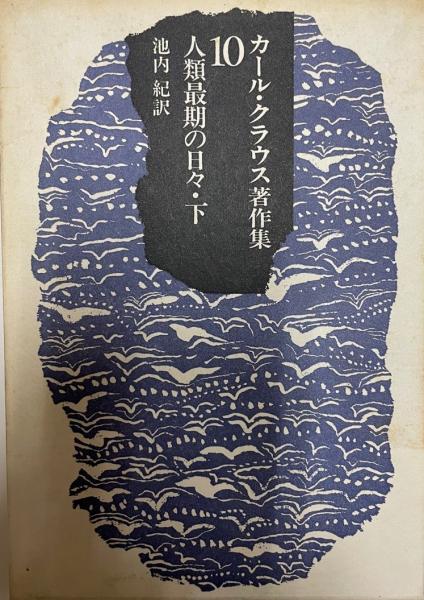 カール・クラウス著作集
10
人類最期の日々・下
池内 紀訳